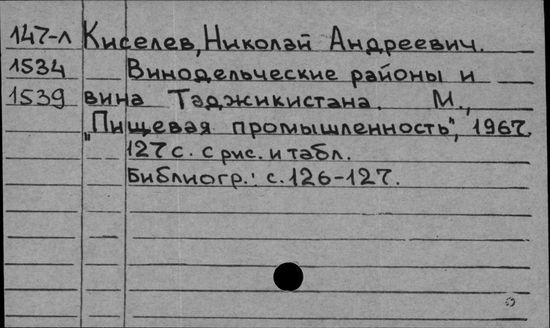 147-л Киселев, Николай Андреевич.
1534 Винодельческие районы и
1539 вина Таджикистана. М.,
"Пищевая промышленность", 1967.
127 с. с рис. и табл.
Библиогр.: с. 126-127.